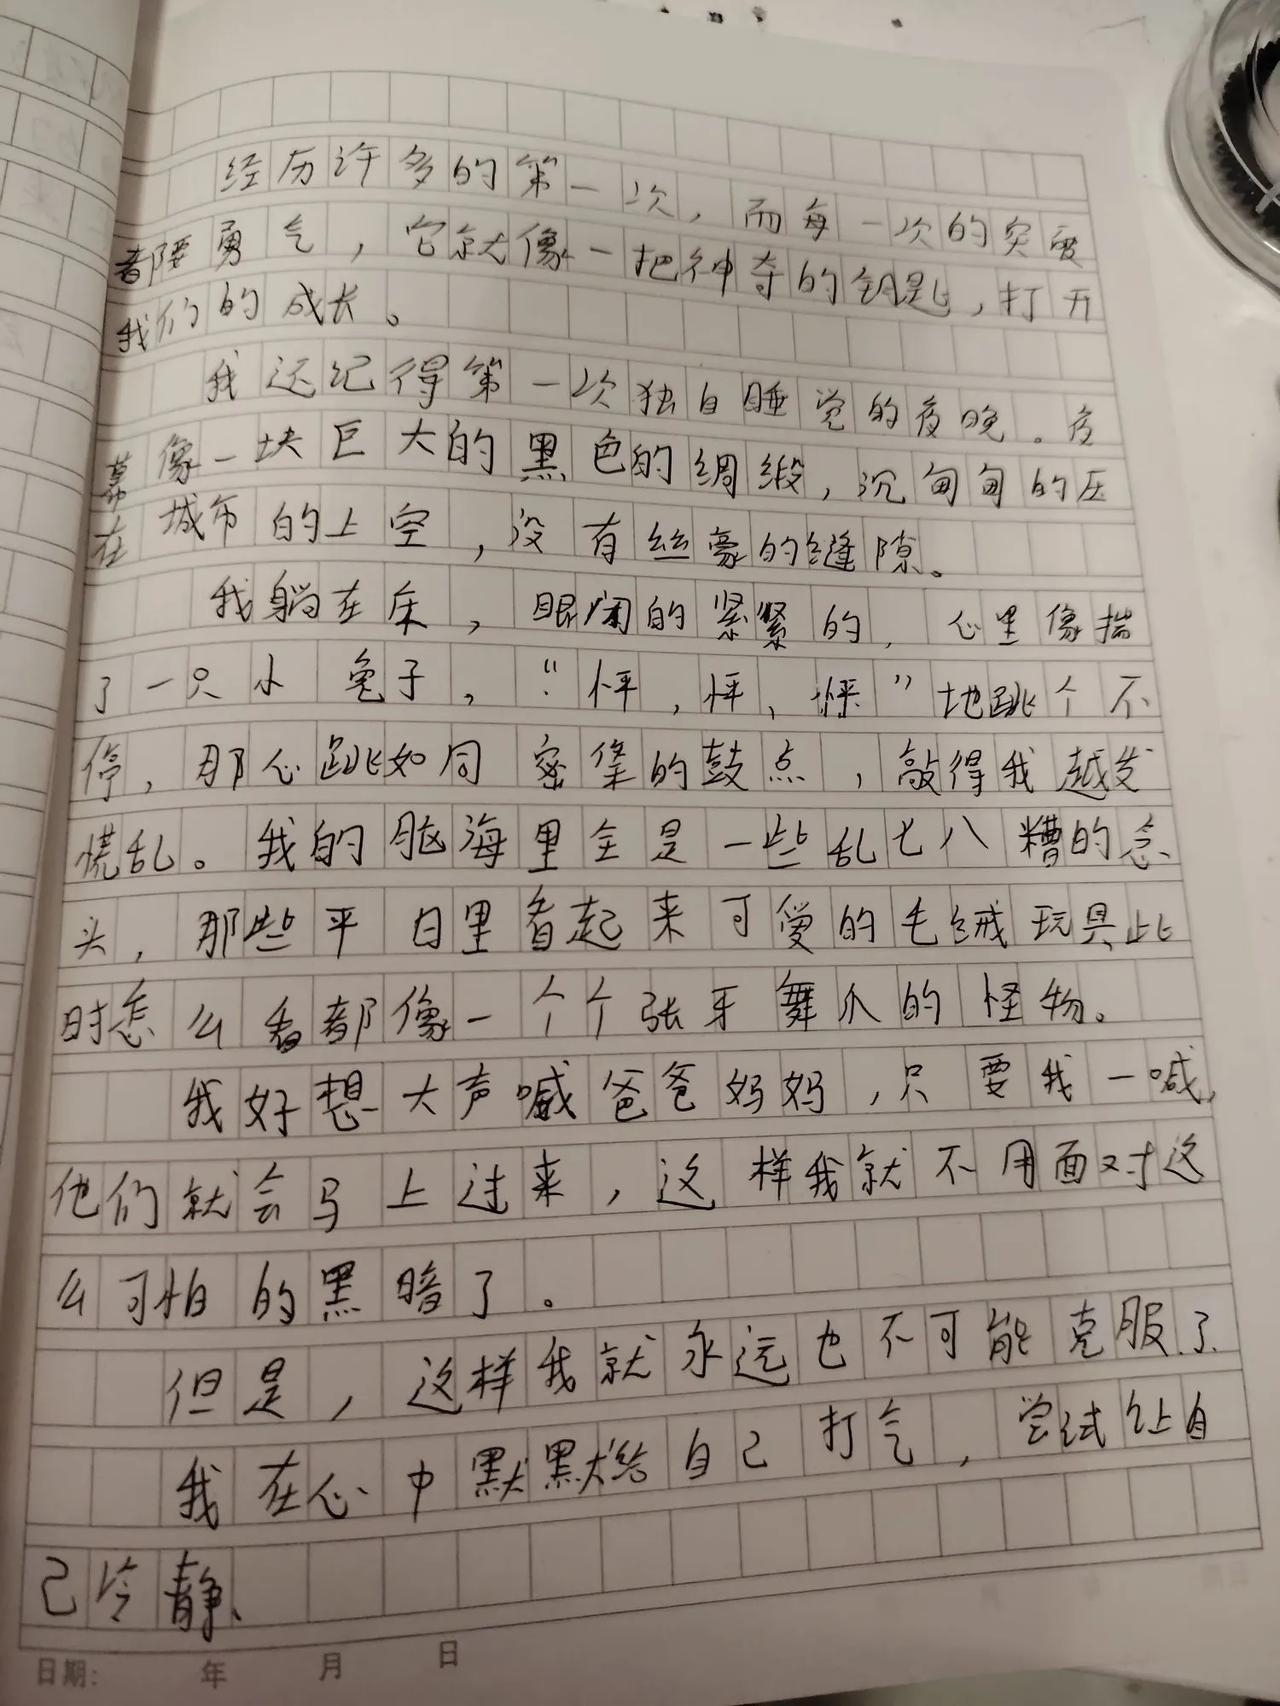 经历许多的第一次，而每一次的突破
都要勇气，它就像一把神奇的钥匙，打开
我们的成长。
我还记得第一次独自睡觉的夜晚。夜
幕像一块巨大的黑色的绸缎，沉甸甸的压
在城市的上空，没有丝豪的缝隙。
我躺在床，眼闭的紧紧的，心里像揣
了一只小兔子，“怦，怦，怦”地跳个不
停，那心跳如同密集的鼓点，敲得我越发
慌乱。我的脑海里全是一些乱七八糟的念
头，那些平日里看起来可爱的毛绒玩具此
时怎么看都像一个个张牙舞爪的怪物。
我好想大声喊爸爸妈妈，只要我一喊，
他们就会马上过来，这样我就不用面对这
么可怕的黑暗了。
但是，这样我就永远也不可能克服了
我在心中默默给自己打气，尝试让自
己冷静、
日期： 年 月 日